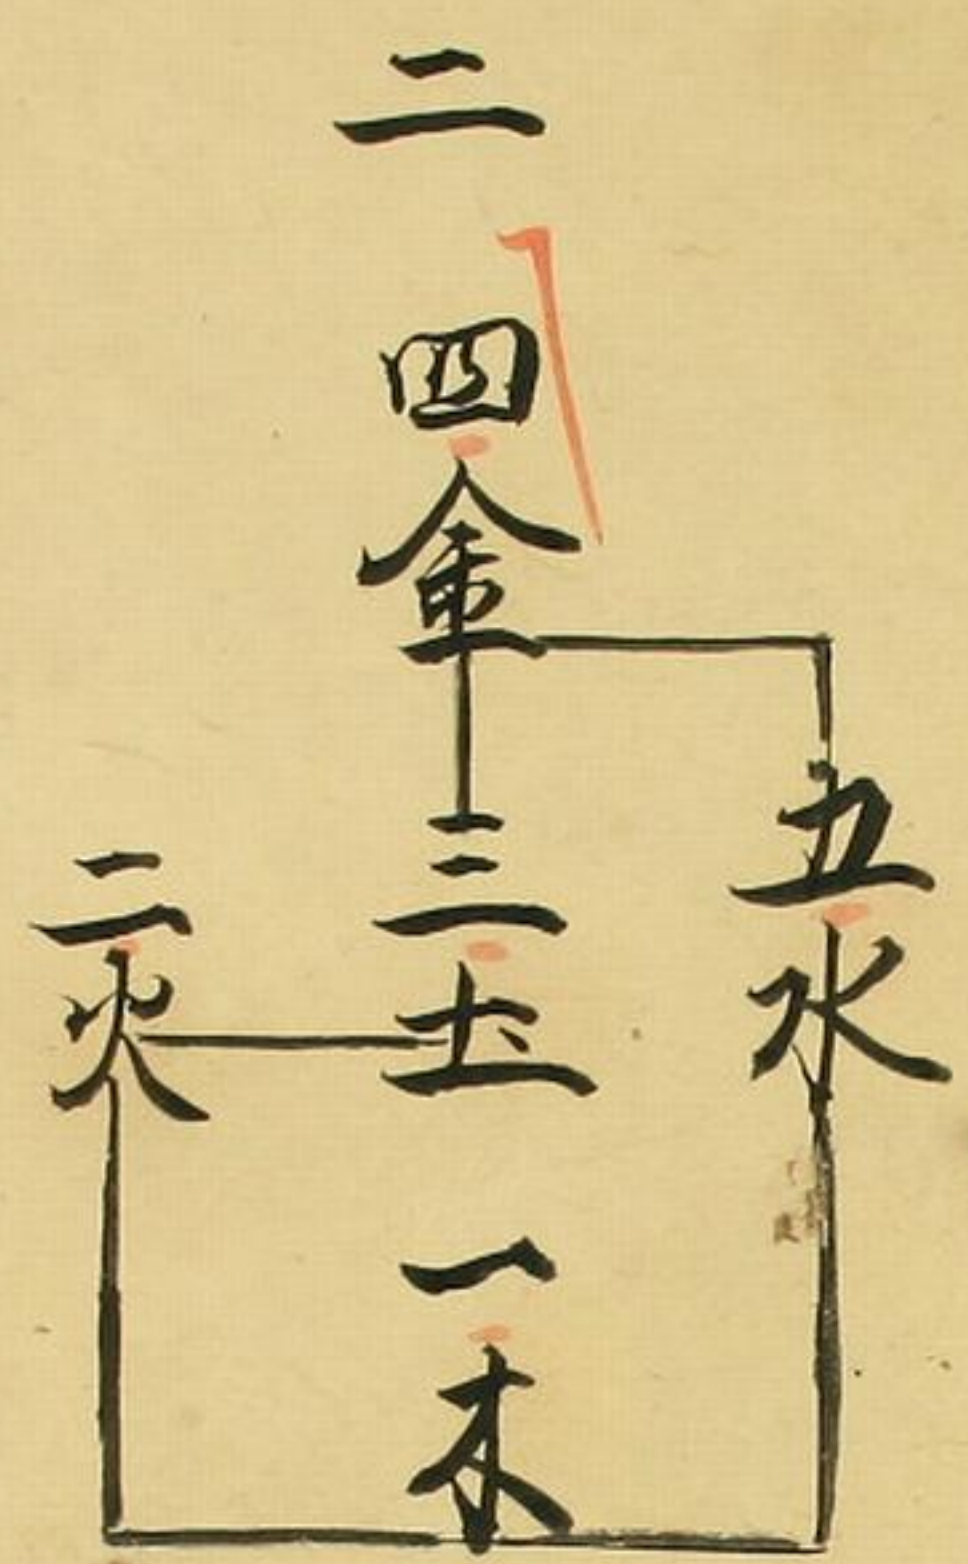 二
四金
五水
三土
二火
一木